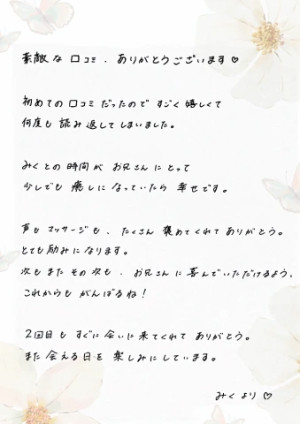 素敵な口コミ、ありがとうございます♡
初めての口コミだったので すごく嬉しくて
何度も 読み返してしまいました。
みくとの時間が お兄さんにとって
少しでも 癒しに なっていたら 幸せです。
声も マッサージも、たくさん 褒めてくれて ありがとう。
とても励みになります。
次も またその次も、お兄さんに 喜んでいただけるよう、
これからも がんばるね!
2回目も すぐに 会いに来てくれて ありがとう。
また 会える日を 楽しみにしています。
みくより♡